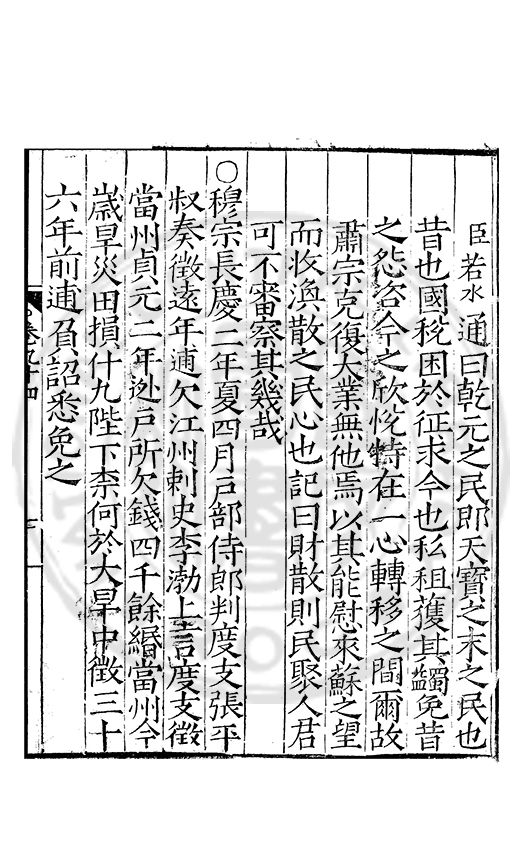 臣若水通曰乾元之民即天寶之末之民也
昔也國稅困於征求今也私租獲其蠲免昔
之怨咨今之欣恱特在一心轉移之間爾故
肅宗克復大業無他焉以其能慰來蘇之望
而收渙散之民心也記曰財散則民聚人君
可不審察其幾哉
○穆宗長慶二年夏四月戸部侍郎判度支張平
叔奏徵遠年逋欠江州刺史李渤上言度支徵
當州貞元二年逃戸所欠錢四千餘緡當州今
歲旱災田損什九陛下柰何於大旱中徵三十
六年前逋負詔悉免之
卷九十四